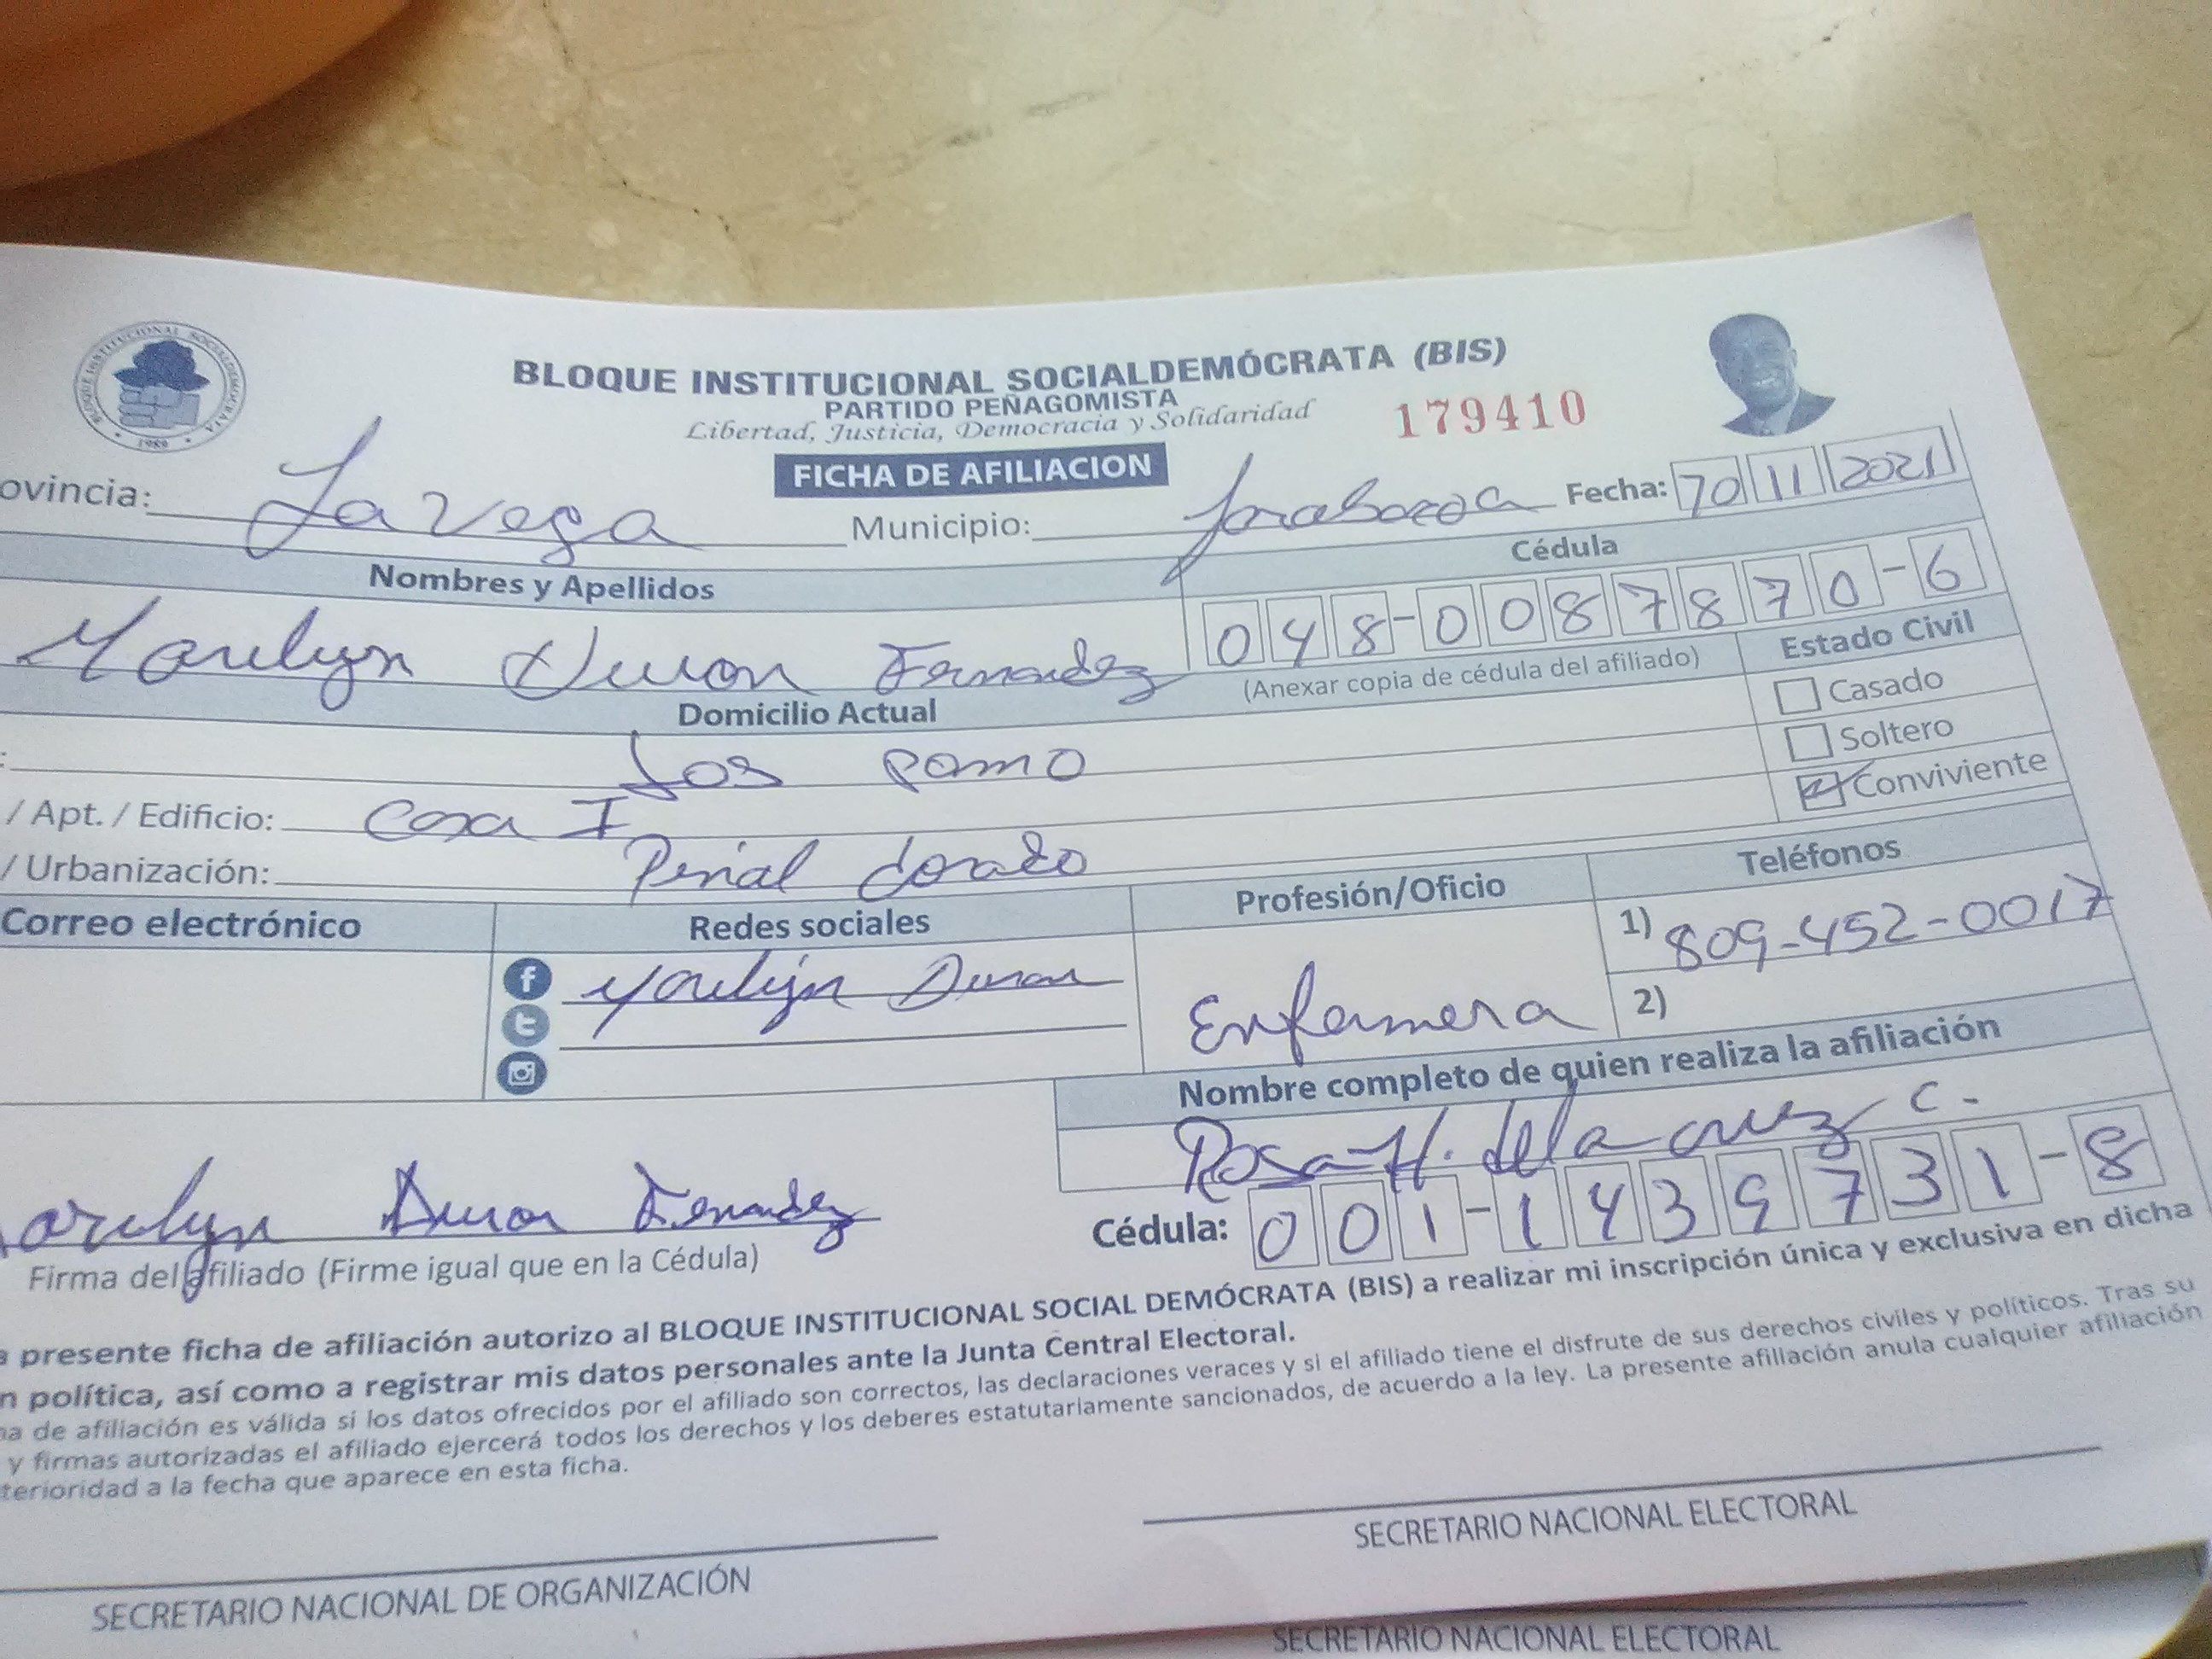 BLOQUE INSTITUCIONAL SOCIALDEMÓCRATA
1989
BLOQUE INSTITUCIONAL SOCIALDEMÓCRATA (BIS)
PARTIDO PEÑAGOMISTA
Libertad, Justicia, Democracia y Solidaridad
179410
FICHA DE AFILIACION
ovincia: La Vega Municipio: Jarabacoa Fecha: 70 11 2021
Nombres y Apellidos Cédula
Marilyn Duran Fernandez 048-0087870-6
(Anexar copia de cédula del afiliado) Estado Civil
Domicilio Actual Casado
: Los Pomo Soltero
/ Apt. / Edificio: Casa I Conviviente
/ Urbanización: Pinal dorado
Correo electrónico Redes sociales Profesión/Oficio Teléfonos
Marilyn Duran Enfermera 1) 809-452-0017
2)
Nombre completo de quien realiza la afiliación
Rosa H. de la cruz C.
Cédula: 001-1439731-8
arilyn Duran Fernandez
Firma del afiliado (Firme igual que en la Cédula)
a presente ficha de afiliación autorizo al BLOQUE INSTITUCIONAL SOCIAL DEMÓCRATA (BIS) a realizar mi inscripción única y exclusiva en dicha
n política, así como a registrar mis datos personales ante la Junta Central Electoral.
na de afiliación es válida si los datos ofrecidos por el afiliado son correctos, las declaraciones veraces y si el afiliado tiene el disfrute de sus derechos civiles y políticos. Tras su
y firmas autorizadas el afiliado ejercerá todos los derechos y los deberes estatutariamente sancionados, de acuerdo a la ley. La presente afiliación anula cualquier afiliación
terioridad a la fecha que aparece en esta ficha.
SECRETARIO NACIONAL DE ORGANIZACIÓN SECRETARIO NACIONAL ELECTORAL
SECRETARIO NACIONAL ELECTORAL